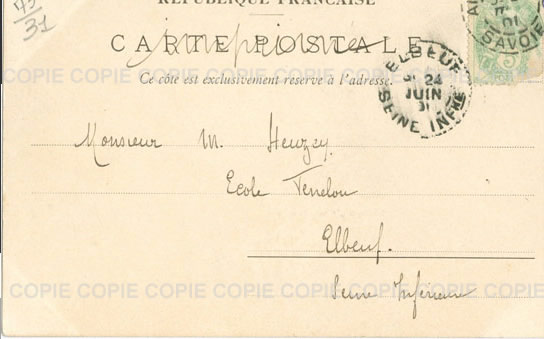 45
31
REPUBLIQUE FRANCAISE
CARTE POSTALE
Ce côté est exclusivement réservé à l'adresse.
ELBEUF
24
JUIN
01
SEINE INFRE
SAVOIE
5
COPIE COPIE COPIE COPIE COPIE COPIE COPIE COPIE
Monsieur M. Heuzey
Ecole Fenelon
Elbeuf.
COPIE COPIE COPIE COPIE COPIE COPIE COPIE COPIE
Seine Inférieure